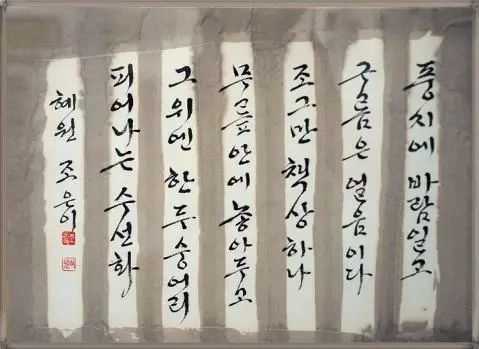 풍지에 바람일고
얼음이다
조그만 책상 하나
무릎 안에 놓아두고
그 위엔 한 두 숭어리
피어나는 수선화
혜원 조은이